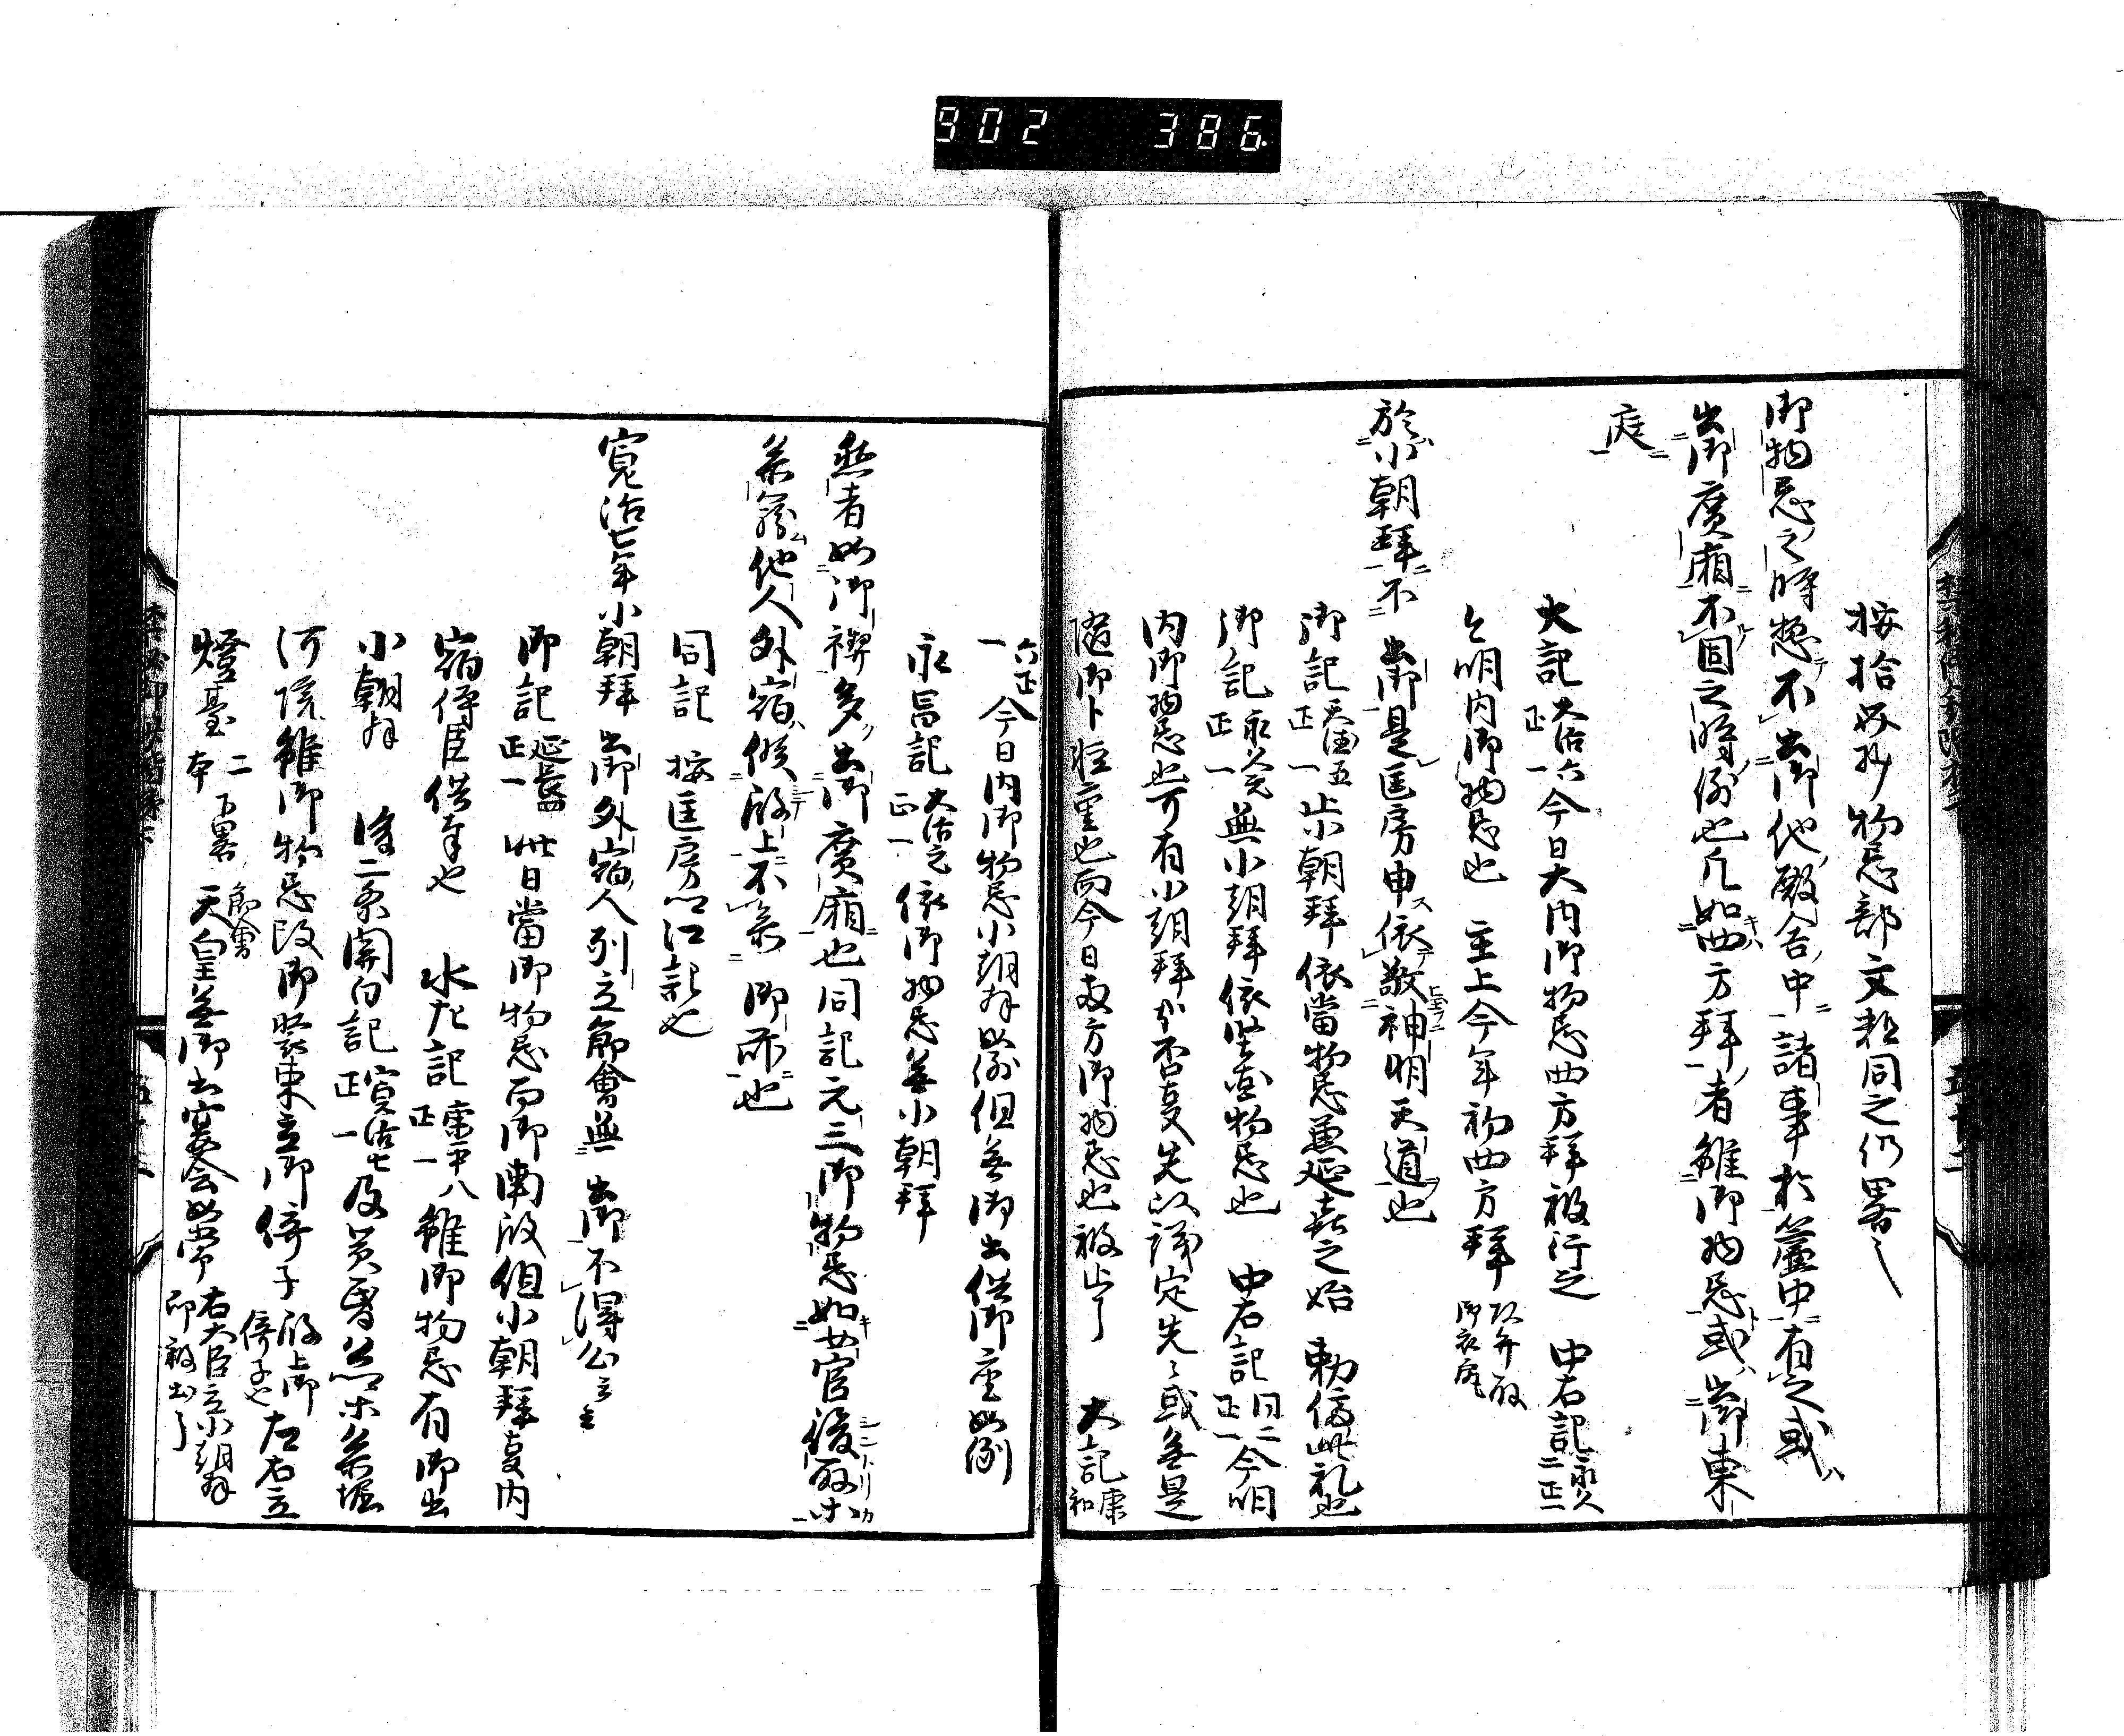 902 386
按拾芥抄物忌部文粗同之仍畧之
御物忌之時惣不出御他殿舎中諸事於簾中有之或
出御廣廂不固之時例也凡如四方拜者雖御物忌或出御東
庭
大記大治六正一今日大内御物忌四方拜被行之 中右記永久二正一
今明内御物忌也 主上今年初四方拜
於小朝拜不出御是匡房申依敬神明天道也
御記天德五正一止小朝拜依當物忌兼延喜之始勅停此礼也
御記永久元正一無小朝拜依堅固物忌也 中右記同二正一今明
内御物忌也可有小朝拜哉否事先以議定先々或無是
随御卜軽重也而今日敎方御物忌也被止了 大記康和
六正一今日内御物忌小朝拜如例但無御出供御座如例
永昌記大治元正一依御物忌無小朝拜
然者如御禊多出御廣廂也同記元三御物忌如女官後取等
参籠他人外宿候殿上不参御所也
同記 按匡房江記也
寛治七年小朝拜出御外宿人列立節會無出御不得公云々
御記延長四正一此日當御物忌而御南殿但小朝拜事内
宿侍臣供奉也 水左記康平八正一雖御物忌有御出
小朝拜 後二条関白記寛治七正一及黄昏然等参堀
河院雖御物忌改御装束立御倚子殿上御倚子也左右立
燈臺二本下畧節會天皇無御出宴会如常右大臣立小朝拜即被出了